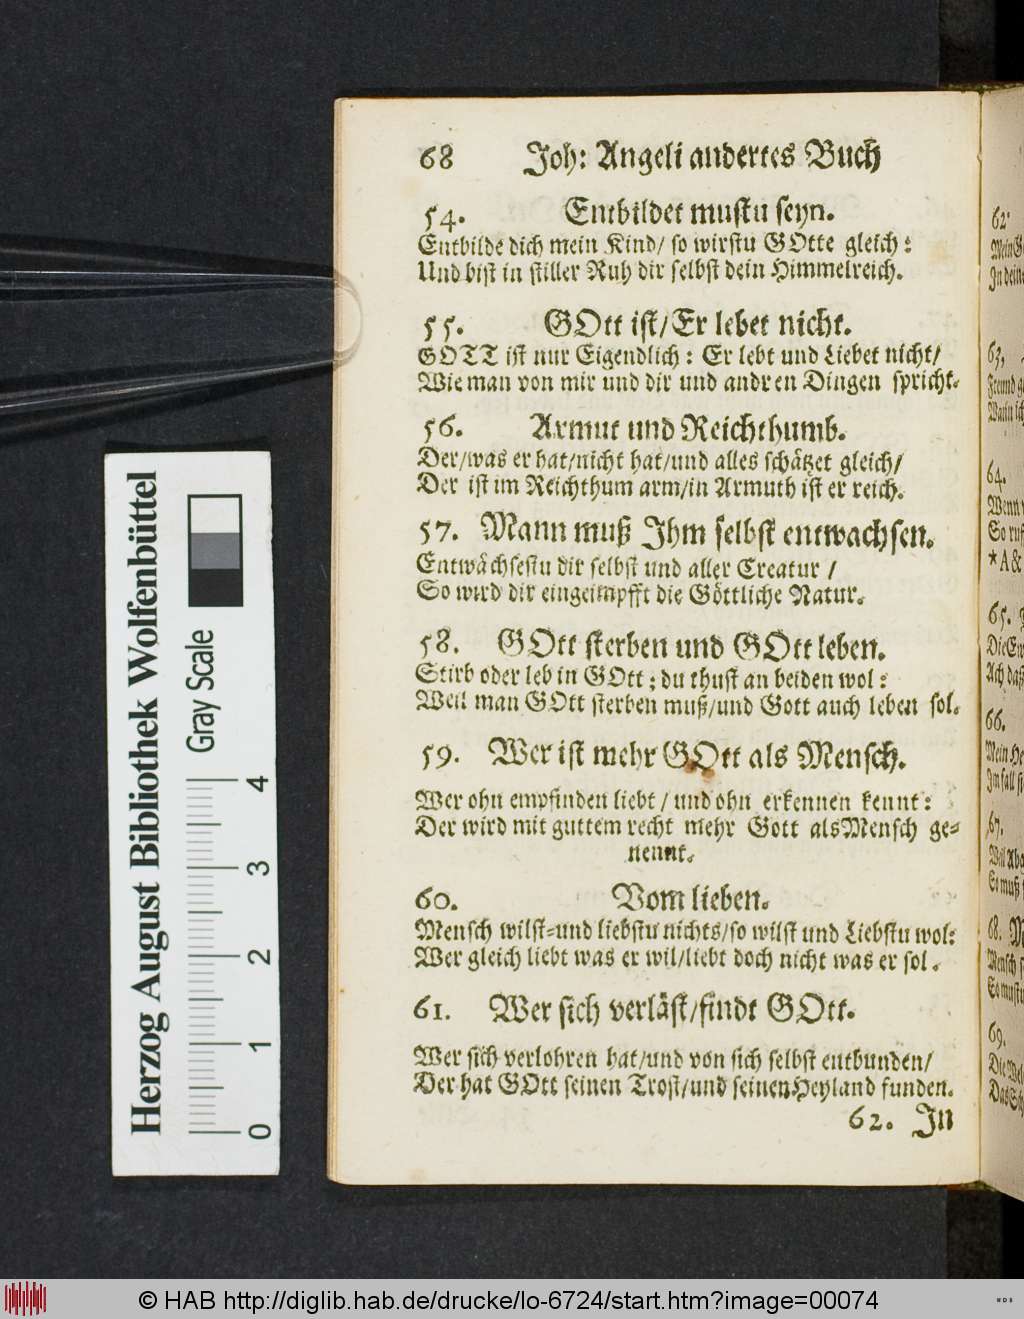 68 Joh: Angeli andertes Buch
54. Entbildet mustu seyn.
Entbilde dich mein Kind/ so wirstu GOtte gleich:
Und bist in stiller Ruh dir selbst dein Himmelreich.
55. GOtt ist/Er lebet nicht.
GOTT ist nur Eigendlich: Er lebt und Liebet nicht/
Wie man von mir und dir und andren Dingen spricht.
56. Armut und Reichthumb.
Der/was er hat/nicht hat/und alles schätzet gleich/
Der ist im Reichthum arm/in Armuth ist er reich.
57. Mann muß Ihm selbst entwachsen.
Entwächsestu dir selbst und aller Creatur /
So wird dir eingeimpfft die Göttliche Natur.
58. GOtt sterben und GOtt leben.
Stirb oder leb in GOtt; du thust an beiden wol:
Weil man GOtt sterben muß/und Gott auch leben sol.
59. Wer ist mehr GOtt als Mensch.
Wer ohn empfinden liebt / und ohn erkennen kennt:
Der wird mit guttem recht mehr Gott alsMensch ge-
nennt.
60. Vom lieben.
Mensch wilst-und liebstu nichts/so wilst und Liebstu wol:
Wer gleich liebt was er wil/liebt doch nicht was er sol.
61. Wer sich verläst/findt GOtt.
Wer sich verlohren hat/und von sich selbst entbunden/
Der hat GOtt seinen Trost/und seinen Heyland funden.
62. In
62.
63.
64.
So ruf
*A &
65.
66.
67.
68.
69.
Herzog August Bibliothek Wolfenbüttel
Gray Scale
0 1 2 3 4
© HAB http://diglib.hab.de/drucke/lo-6724/start.htm?image=00074
WDB